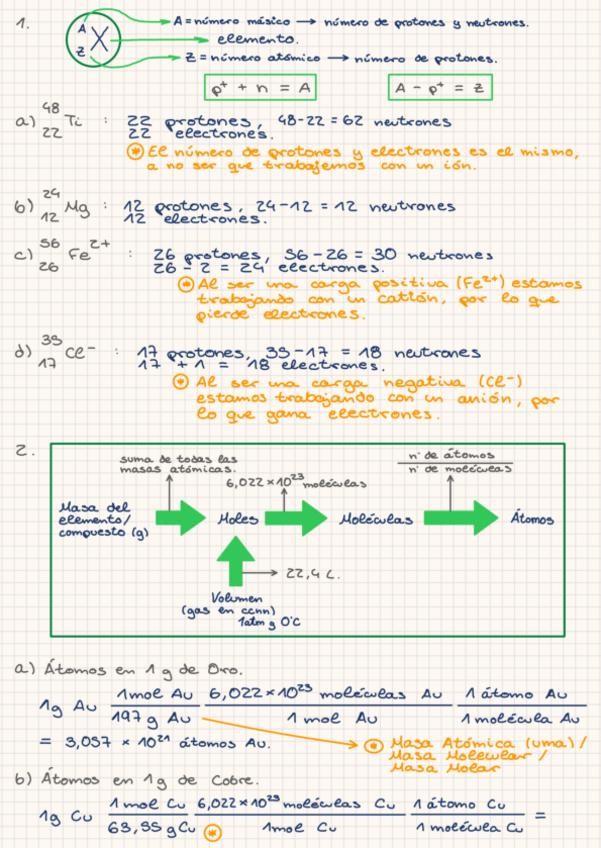 1. A X Z
A = número másico → número de protones y neutrones.
elemento.
Z = número atómico → número de protones.
p⁺ + n = A
A - p⁺ = Z
a) ⁴⁸₂₂Ti : 22 protones, 48-22 = 62 neutrones
22 electrones.
* El número de protones y electrones es el mismo,
a no ser que trabajemos con un ión.
b) ²⁴₁₂Mg : 12 protones, 24-12 = 12 neutrones
12 electrones.
c) ⁵⁶₂₆Fe²⁺ : 26 protones, 56-26 = 30 neutrones
26 - 2 = 24 electrones.
* Al ser una carga positiva (Fe²⁺) estamos
trabajando con un catión, por lo que
pierde electrones.
d) ³⁵₁₇Cl⁻ : 17 protones, 35-17 = 18 neutrones
17 + 1 = 18 electrones.
* Al ser una carga negativa (Cl⁻)
estamos trabajando con un anión, por
lo que gana electrones.
2.
suma de todas las
masas atómicas.
6,022×10²³ moléculas
nº de átomos
nº de moléculas
Masa del
elemento/
compuesto (g)
Moles
Moléculas
Átomos
22,4 L.
Volumen
(gas en ccnn)
1atm y 0°C
a) Átomos en 1 g de Oro.
1g Au 1mol Au 6,022×10²³ moléculas Au 1 átomo Au
197 g Au 1 mol Au 1 molécula Au
= 3,057 × 10²¹ átomos Au.
* Masa Atómica (uma) /
Masa Molecular /
Masa Molar
b) Átomos en 1g de Cobre.
1g Cu 1 mol Cu 6,022×10²³ moléculas Cu 1 átomo Cu =
63,55 g Cu * 1mol Cu 1 molécula Cu